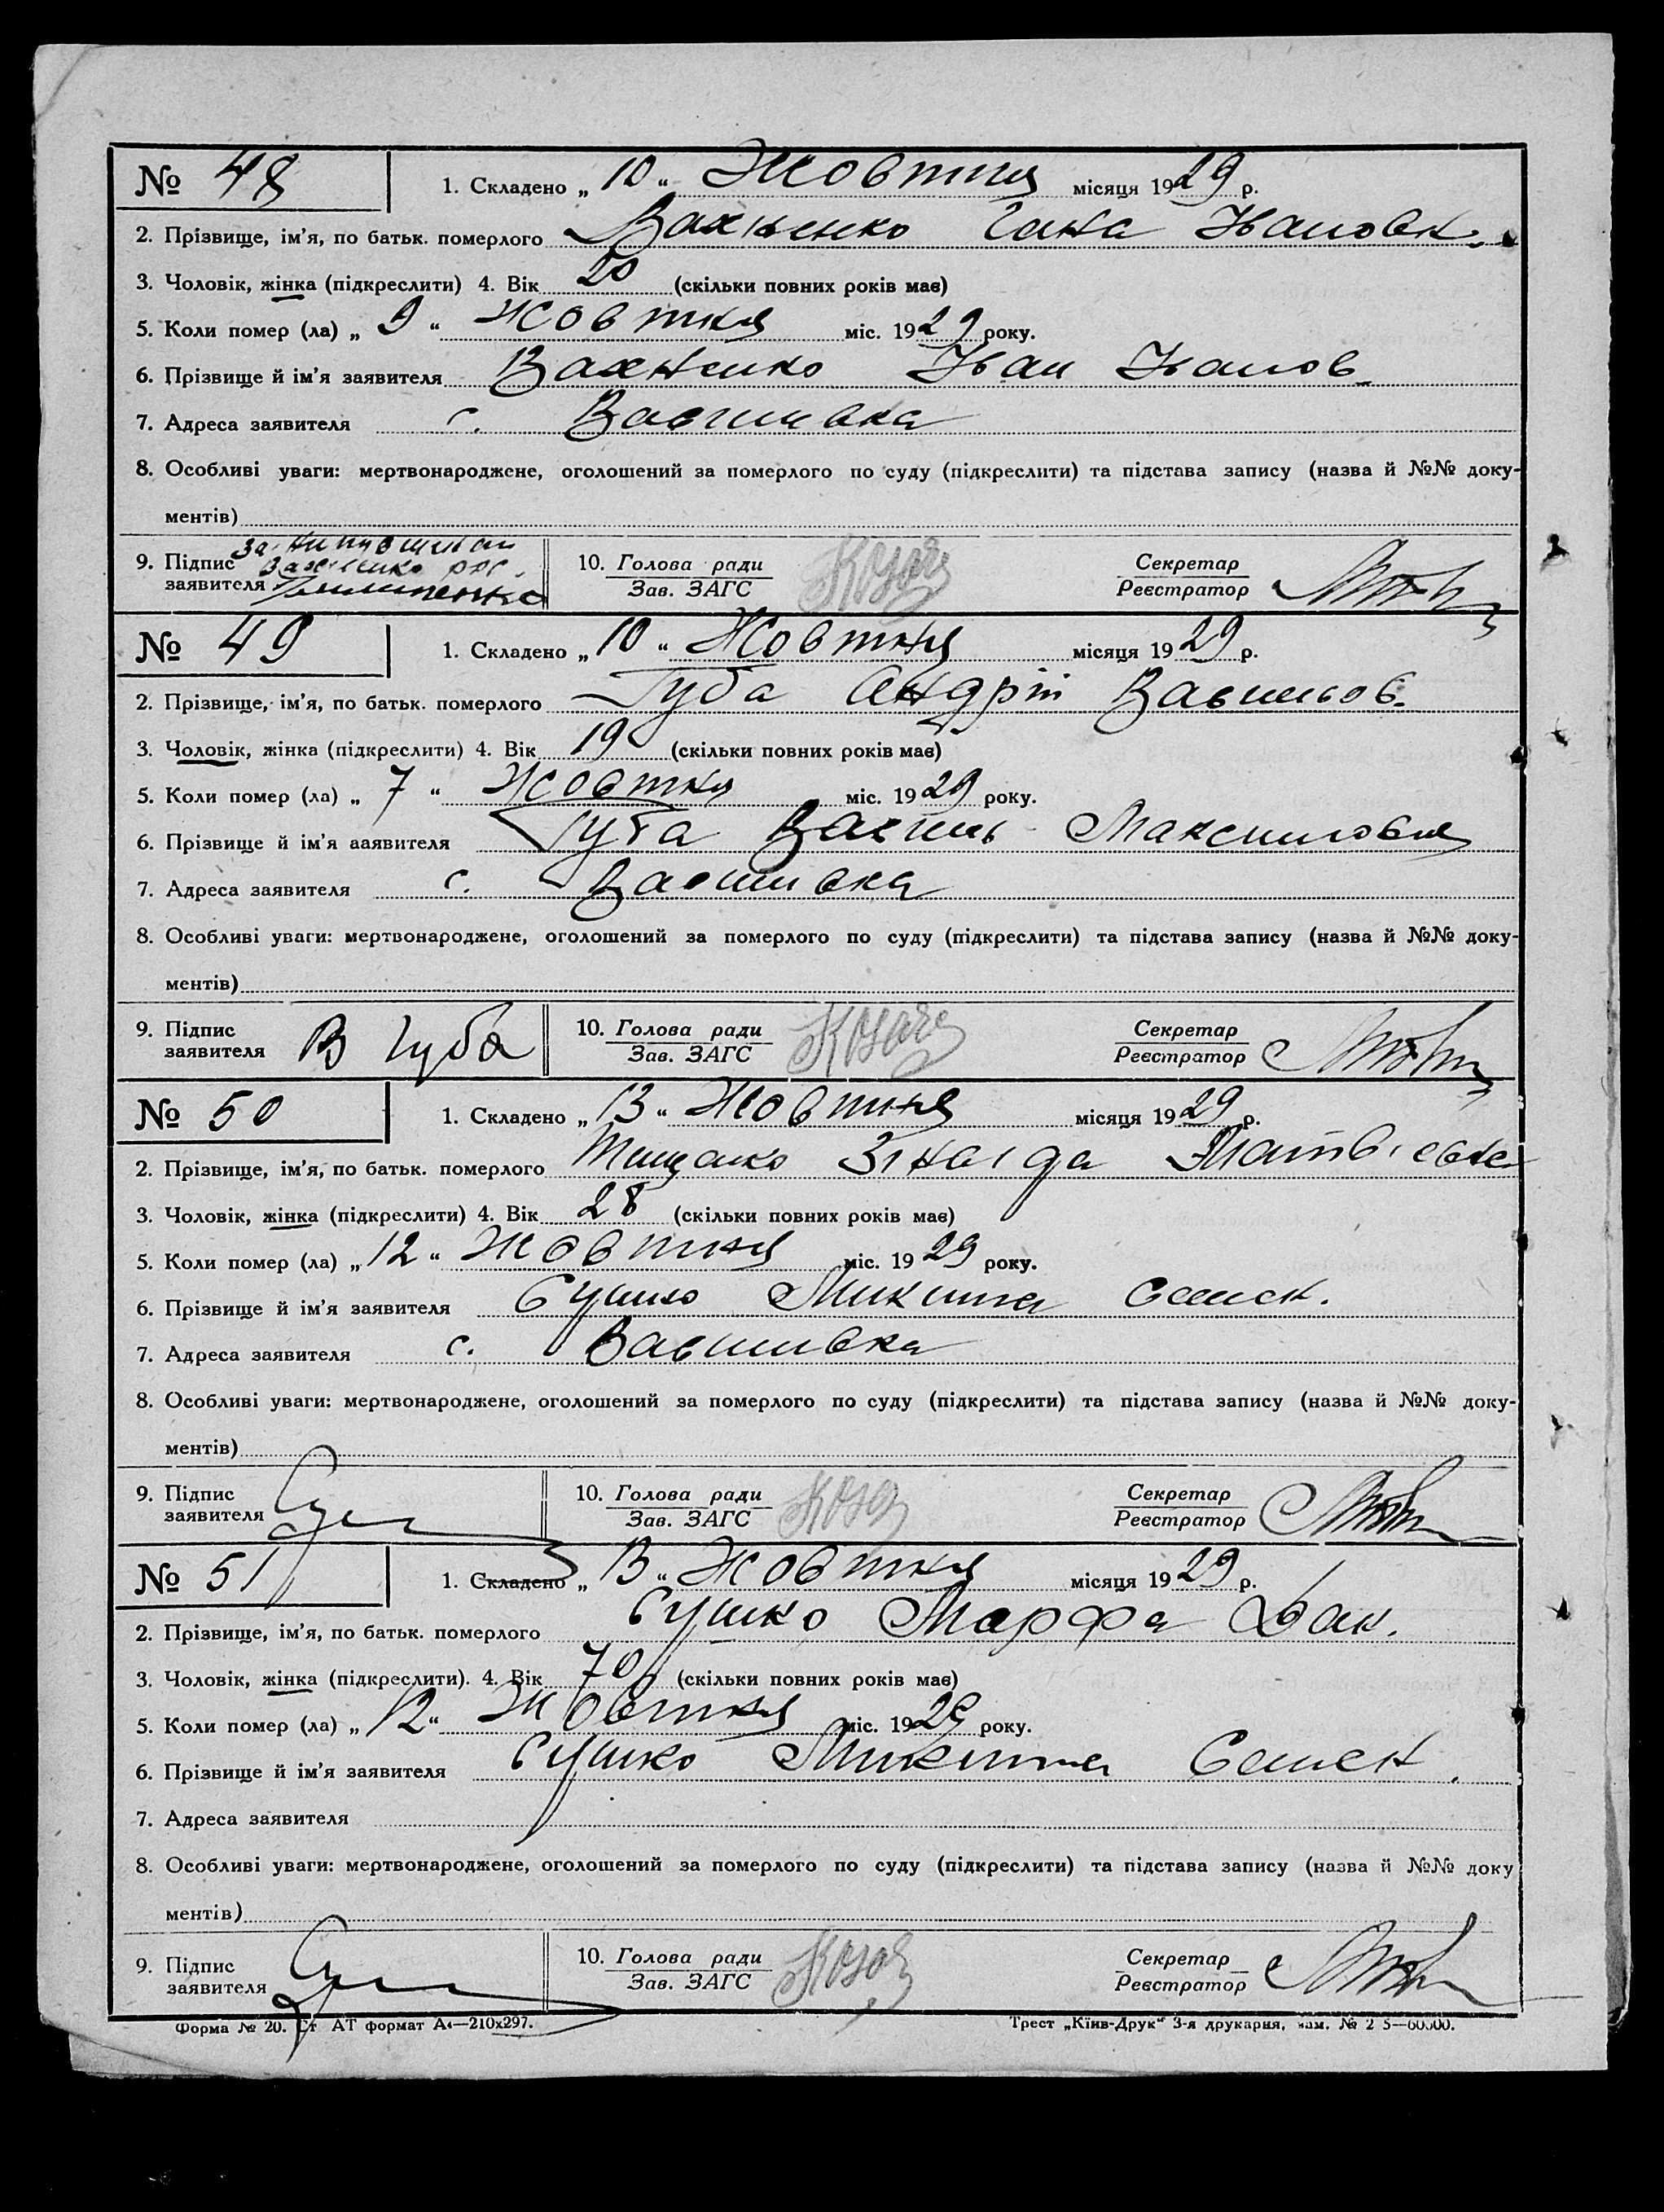 № 48 1. Складено „ 10 “ Жовтня місяця 1929 р.
2. Прізвище, ім'я, по батьк. померлого Вахненко Гана Івановн.
3. Чоловік, жінка (підкреслити) 4. Вік 20 (скільки повних років має)
5. Коли помер (ла) „ 9 “ Жовтня міс. 1929 року.
6. Прізвище й ім'я заявителя Вахненко Іван Іванов
7. Адреса заявителя с. Василивка
8. Особливі уваги: мертвонароджене, оголошений за померлого по суду (підкреслити) та підстава запису (назва й №№ доку-
ментів)
за
Вахненко рос.
9. Підпис заявителя
10. Голова ради
Зав. ЗАГС
Козач
Секретар
Реєстратор
№ 49 1. Складено „ 10 “ Жовтня місяця 1929 р.
2. Прізвище, ім'я, по батьк. померлого Губа Андрій Васильов.
3. Чоловік, жінка (підкреслити) 4. Вік 19 (скільки повних років має)
5. Коли помер (ла) „ 7 “ Жовтня міс. 1929 року.
6. Прізвище й ім'я ааявителя Губа Василь Максимович
7. Адреса заявителя с. Василивка
8. Особливі уваги: мертвонароджене, оголошений за померлого по суду (підкреслити) та підстава запису (назва й №№ доку-
ментів)
9. Підпис заявителя В Губа
10. Голова ради
Зав. ЗАГС
Козач
Секретар
Реєстратор
№ 50 1. Складено „ 13 “ Жовтня місяця 1929 р.
2. Прізвище, ім'я, по батьк. померлого Тищенко Зінаїда Матвієвна
3. Чоловік, жінка (підкреслити) 4. Вік 28 (скільки повних років має)
5. Коли помер (ла) „ 12 “ Жовтня міс. 1929 року.
6. Прізвище й ім'я заявителя Сушко Микита Семен.
7. Адреса заявителя с. Василивка
8. Особливі уваги: мертвонароджене, оголошений за померлого по суду (підкреслити) та підстава запису (назва й №№ доку-
ментів)
9. Підпис заявителя
10. Голова ради
Зав. ЗАГС
Козач
Секретар
Реєстратор
№ 51 1. Складено „ 13 “ Жовтня місяця 1929 р.
2. Прізвище, ім'я, по батьк. померлого Сушко Марфа Як.
3. Чоловік, жінка (підкреслити). 4. Вік 70 (скільки повних років має)
5. Коли помер (ла) „ 12 “ Жовтня міс. 1929 року.
6. Прізвище й ім'я заявителя Сушко Микита Семен.
7. Адреса заявителя
8. Особливі уваги: мертвонароджене, оголошений за померлого по суду (підкреслити) та підстава запису (назва й №№ доку
ментів)
9. Підпис заявителя
10. Голова ради
Зав. ЗАГС
Козач
Секретар
Реєстратор
Форма № 20. Ст АТ формат А₄—210х297. Трест „Київ-Друк“ 3-я друкарня, зам. № 2 5—60500.